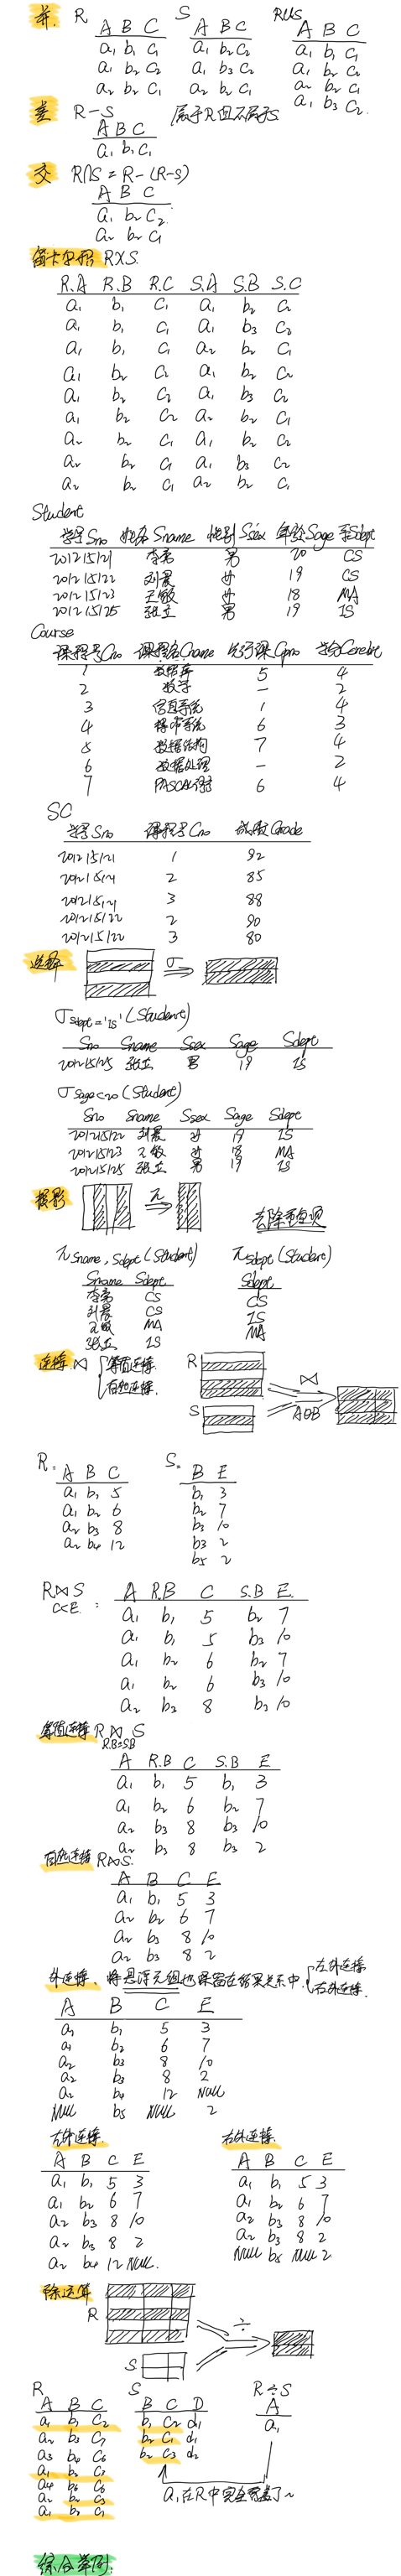 并. R S R∪S
A B C A B C A B C
a₁ b₁ c₁ a₁ b₂ c₂ a₁ b₁ c₁
a₁ b₂ c₂ a₁ b₃ c₂ a₁ b₂ c₂
a₂ b₂ c₁ a₂ b₂ c₁ a₂ b₂ c₁
a₁ b₃ c₂
差 R-S 属于R但不属于S
A B C
a₁ b₁ c₁
交 R∩S = R-(R-S)
A B C
a₁ b₂ c₂
a₂ b₂ c₁
笛卡尔积 R×S
R.A R.B R.C S.A S.B S.C
a₁ b₁ c₁ a₁ b₂ c₂
a₁ b₁ c₁ a₁ b₃ c₂
a₁ b₁ c₁ a₂ b₂ c₁
a₁ b₂ c₂ a₁ b₂ c₂
a₁ b₂ c₂ a₁ b₃ c₂
a₁ b₂ c₂ a₂ b₂ c₁
a₂ b₂ c₁ a₁ b₂ c₂
a₂ b₂ c₁ a₁ b₃ c₂
a₂ b₂ c₁ a₂ b₂ c₁
Student
学号Sno 姓名Sname 性别Ssex 年龄Sage 系Sdept
201215121 李勇 男 20 CS
201215122 刘晨 女 19 CS
201215123 王敏 女 18 MA
201215125 张立 男 19 IS
Course
课程号Cno 课程名Cname 先行课Cpno 学分Ccredit
1 数据库 5 4
2 数学 - 2
3 信息系统 1 4
4 操作系统 6 3
5 数据结构 7 4
6 数据处理 - 2
7 PASCAL语言 6 4
SC
学号Sno 课程号Cno 成绩Grade
201215121 1 92
201215121 2 85
201215121 3 88
201215122 2 90
201215122 3 80
选择 σ
σ Sdept='IS' (Student)
Sno Sname Ssex Sage Sdept
201215125 张立 男 19 IS
σ Sage<20 (Student)
Sno Sname Ssex Sage Sdept
201215122 刘晨 女 19 IS
201215123 王敏 女 18 MA
201215125 张立 男 19 IS
投影 π 去除重复项
π Sname, Sdept (Student) π Sdept (Student)
Sname Sdept Sdept
李勇 CS CS
刘晨 CS IS
王敏 MA MA
张立 IS
连接 ⋈ { 等值连接. R ⋈
自然连接. S AθB
R: S:
A B C B E
a₁ b₁ 5 b₁ 3
a₁ b₂ 6 b₂ 7
a₂ b₃ 8 b₃ 10
a₂ b₄ 12 b₃ 2
b₅ 2
R⋈S C<E :
A R.B C S.B E
a₁ b₁ 5 b₂ 7
a₁ b₁ 5 b₃ 10
a₁ b₂ 6 b₂ 7
a₁ b₂ 6 b₃ 10
a₂ b₃ 8 b₃ 10
等值连接 R⋈S R.B=S.B
A R.B C S.B E
a₁ b₁ 5 b₁ 3
a₁ b₂ 6 b₂ 7
a₂ b₃ 8 b₃ 10
a₂ b₃ 8 b₃ 2
自然连接 R⋈S.
A B C E
a₁ b₁ 5 3
a₂ b₂ 6 7
a₂ b₃ 8 10
a₂ b₃ 8 2
外连接. 将悬浮元组也保留在结果关系中. { 左外连接
右外连接.
A B C E
a₁ b₁ 5 3
a₁ b₂ 6 7
a₂ b₃ 8 10
a₂ b₃ 8 2
a₂ b₄ 12 NULL
NULL b₅ NULL 2
左外连接. 右外连接.
A B C E A B C E
a₁ b₁ 5 3 a₁ b₁ 5 3
a₁ b₂ 6 7 a₁ b₂ 6 7
a₂ b₃ 8 10 a₂ b₃ 8 10
a₂ b₃ 8 2 a₂ b₃ 8 2
a₂ b₄ 12 NULL. NULL b₅ NULL 2
除运算
R ÷
S
R S R÷S
A B C B C D A
a₁ b₁ c₂ b₁ c₂ d₁ a₁
a₂ b₃ c₇ b₂ c₁ d₁
a₃ b₄ c₆ b₂ c₃ d₂
a₁ b₂ c₃
a₄ b₆ c₆
a₂ b₂ c₃
a₁ b₂ c₁
综合举例.